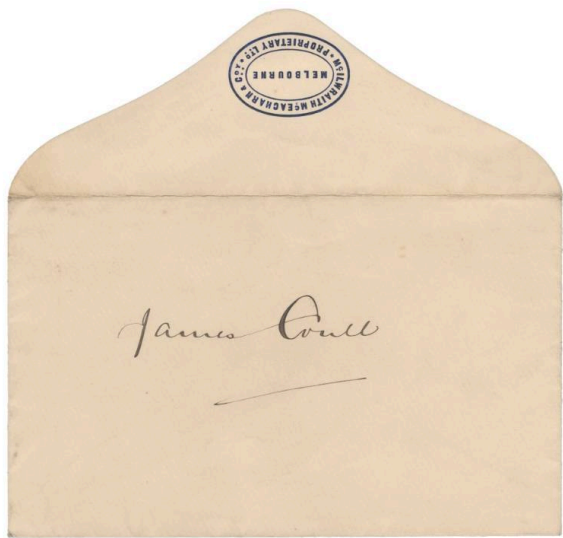 McILWRAITH McEACHARN & Coy.
PROPRIETARY LTD
MELBOURNE
James Coull